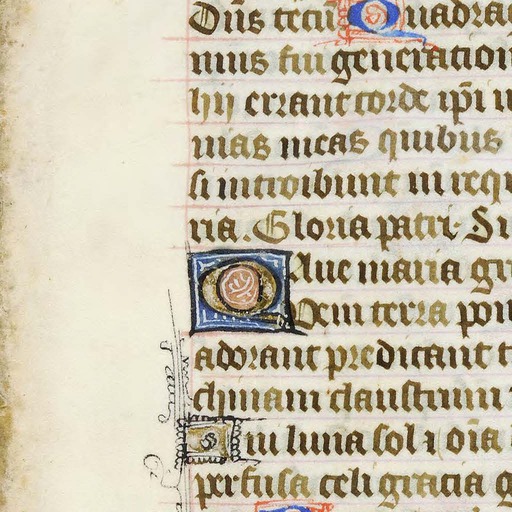 Dñs tecũ Quadra
mus fui generation
hii errant corde ip̃i n
uias meas quibus
si introibunt in requ
ria. Gloria patri. Si
Aue maria gr
Quem terra pon
adorant predicant t
chinam claustrum
ui luna sol ⁊ oĩa
perfusa celi gracia g